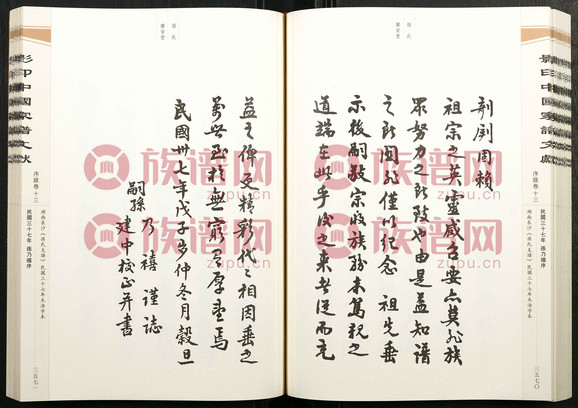 影印中國家譜文獻
序跋卷 十三
民國三十七年 孫乃禧序
湖南長沙《孫氏支譜》民國三十七年木活字本
三五七〇
孫氏
剞劂固賴
祖宗之英靈感召要亦莫非族
眾努力之所致也由是益知譜
之所關非僅以紀念 祖先垂
示後嗣敬宗收族務末篤親之
道端在此乎後之來者從而充
孫氏
益之俾更精彩代之相因垂之
萬世至於無窮有厚望焉
民國卅七年戊子冬仲冬月穀旦
嗣孫 乃禧 謹誌
建中校正并書
影印中國家譜文獻
序跋卷 十三
民國三十七年 孫乃禧序
湖南長沙《孫氏支譜》民國三十七年木活字本
三五七一
族谱网
zupu.com
族谱网
zupu.com
族谱网
zupu.com
族谱网
zupu.com